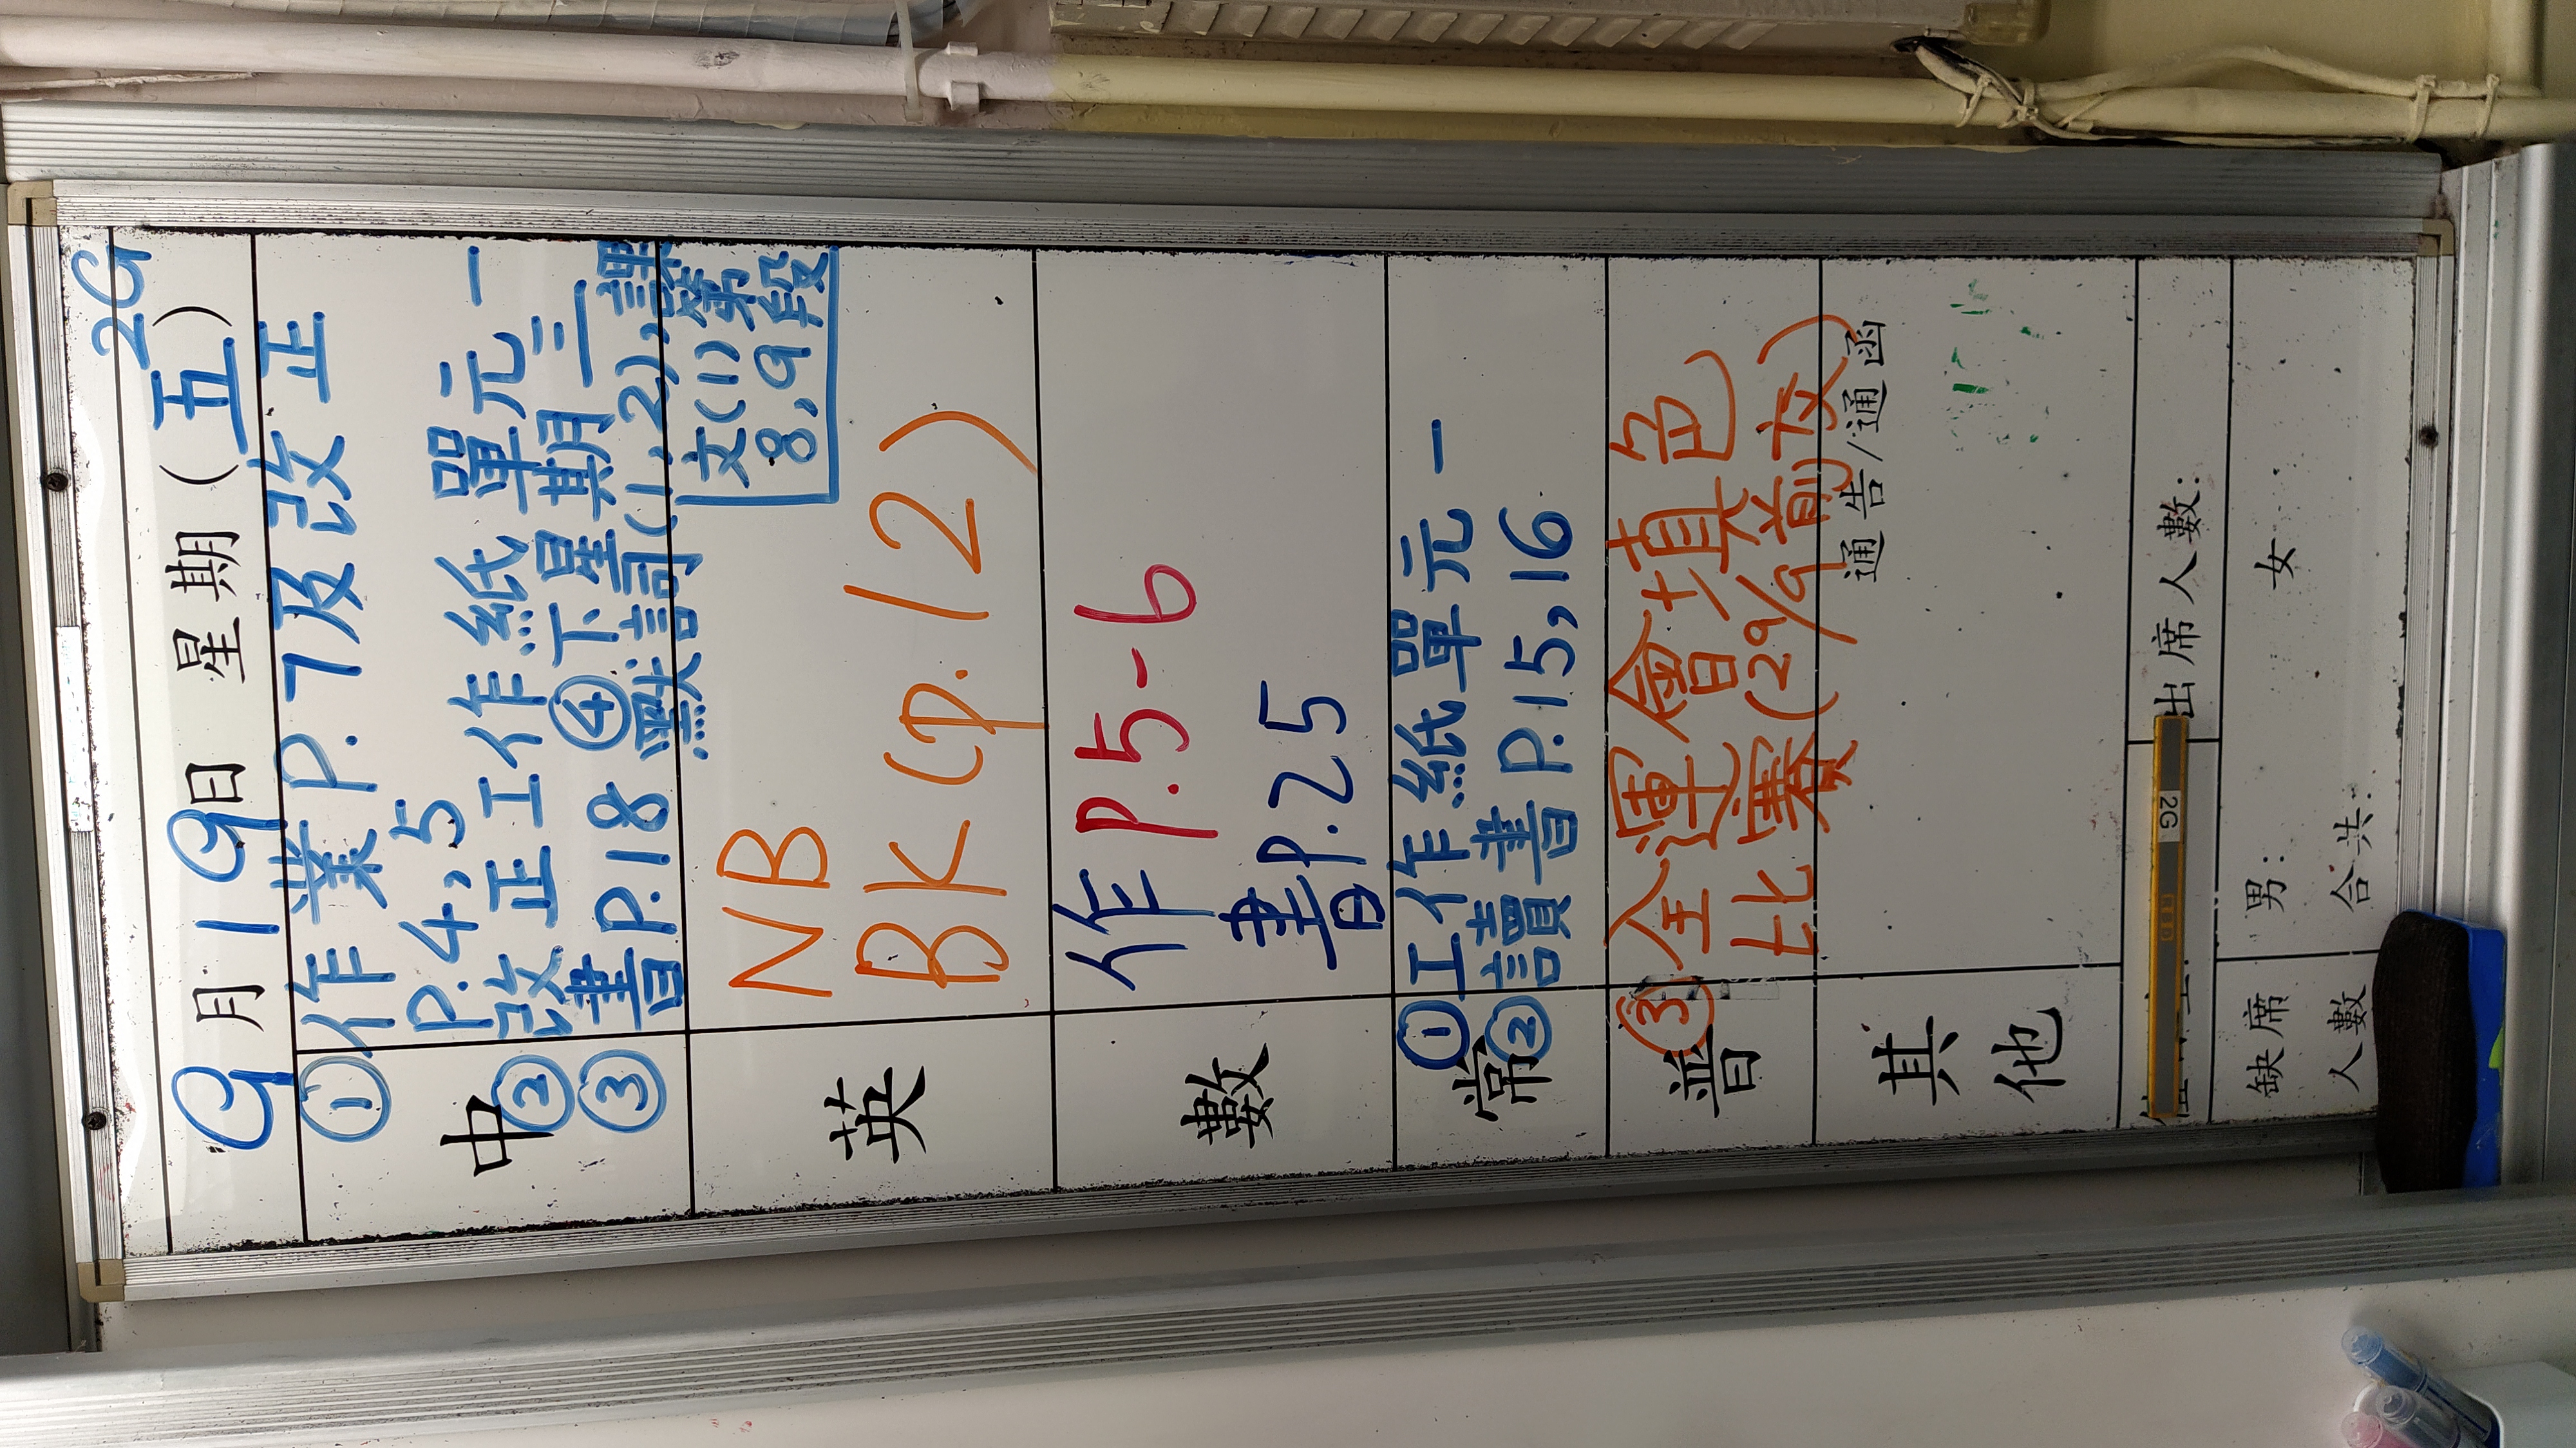 2G
9月19日 星期(五)
中
①作業P.7及改正
②工作紙單元一
P.4,5
改正工作紙單元一
③書P.18 ④下星期三
默詞(1,2),課
文(1)第
8,9段
英
NB
BK (p.12)
數
作P.5-6
書P.25
常
①工作紙單元一
②讀書P.15,16
普
③全運會填色
比賽(29/9前交)
其他
通告/通函
出席人數:
缺席人數
男:
女
合共:
2G